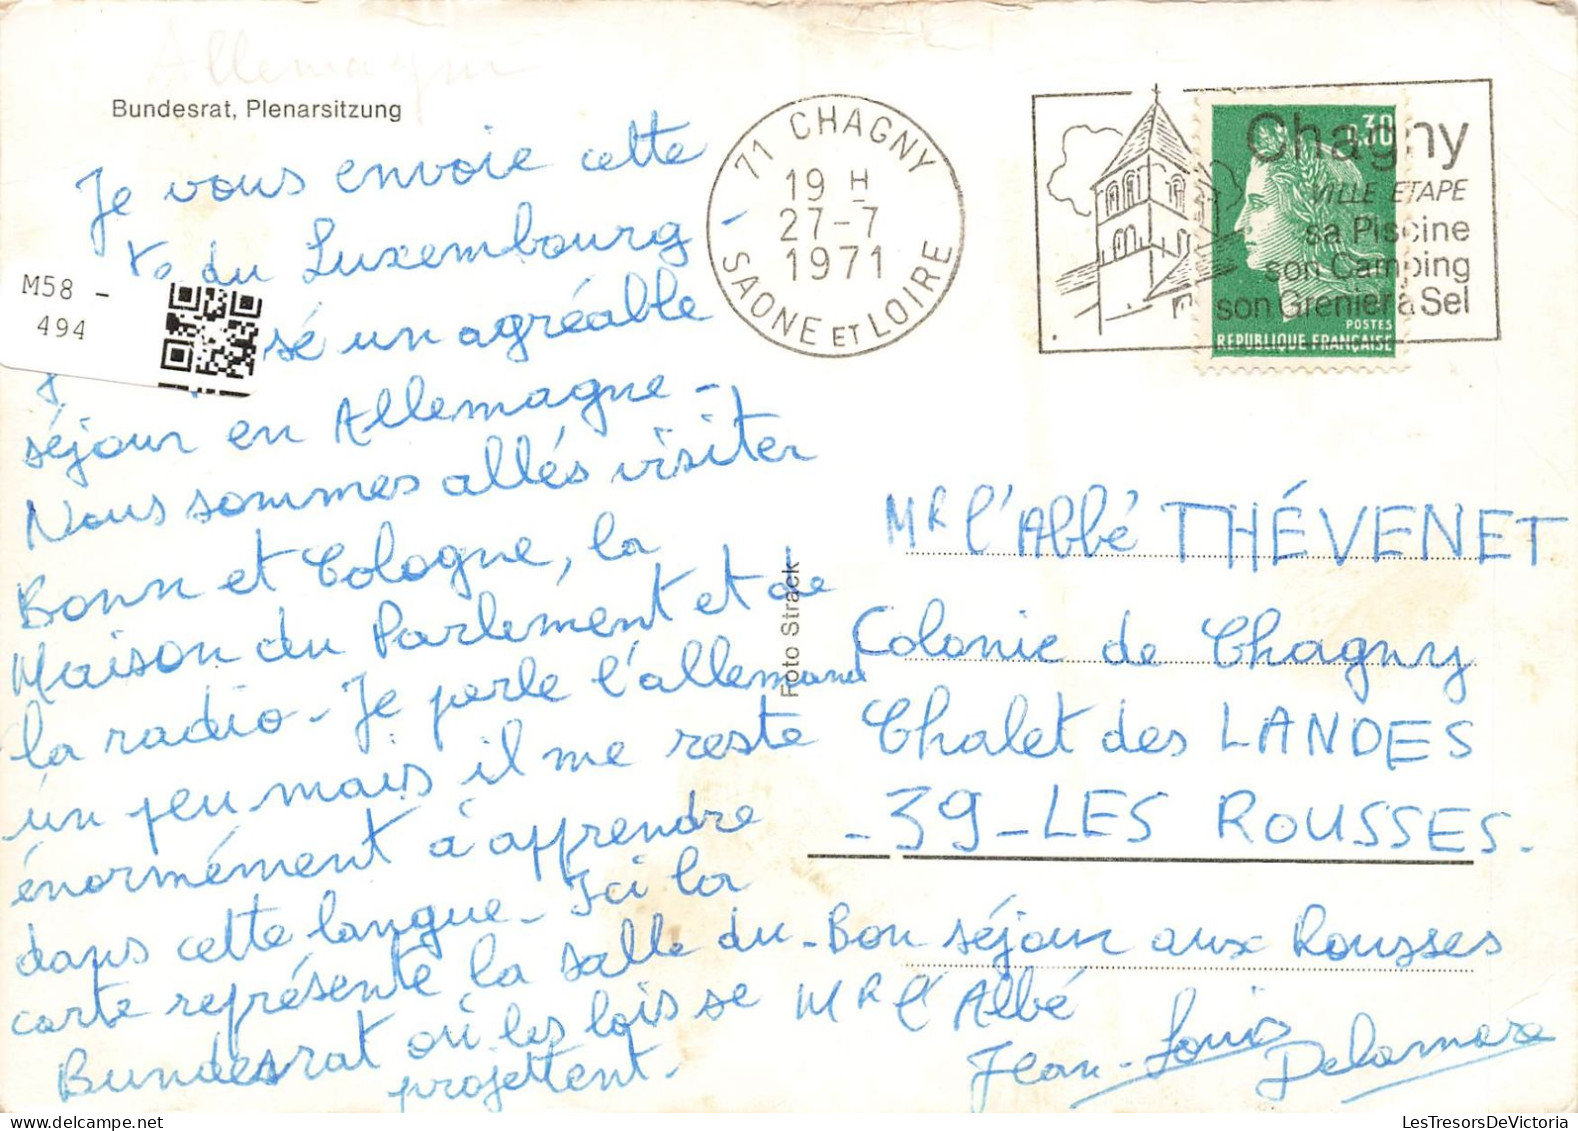 Allemagne
Bundesrat, Plenarsitzung
Je vous envoie cette
du Luxembourg -
sé un agréable
séjour en Allemagne -
Nous sommes allés visiter
Bonn et Cologne, la
Maison du Parlement et de
la radio - Je parle l'allemand
un peu mais il me reste
énormément à apprendre
dans cette langue - Ici la
carte représente la salle du
Bundesrat où les lois se
projettent.
M58 -
494
71 CHAGNY
19 H
27-7
1971
SAONE ET LOIRE
Chagny
VILLE ETAPE
sa Piscine
son Camping
son Grenier à Sel
0,30
POSTES
REPUBLIQUE FRANÇAISE
Foto Strack
Mr l'Abbé THÉVENET
Colonie de Chagny
Chalet des LANDES
- 39 - LES ROUSSES.
- Bon séjour aux Rousses
Mr l'Abbé
Jean-Louis Delamare
LesTresorsDeVictoria